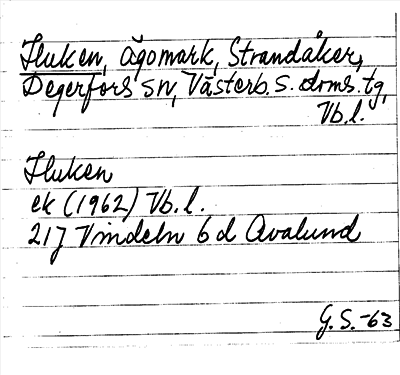 Fluken, ägomark, Strandåker,
Degerfors sn, Västerb. s. doms. tg,
Vb. l.
Fluken
ek (1962) Vb. l.
21J Vindeln 6 d Avalund
G. S. -63